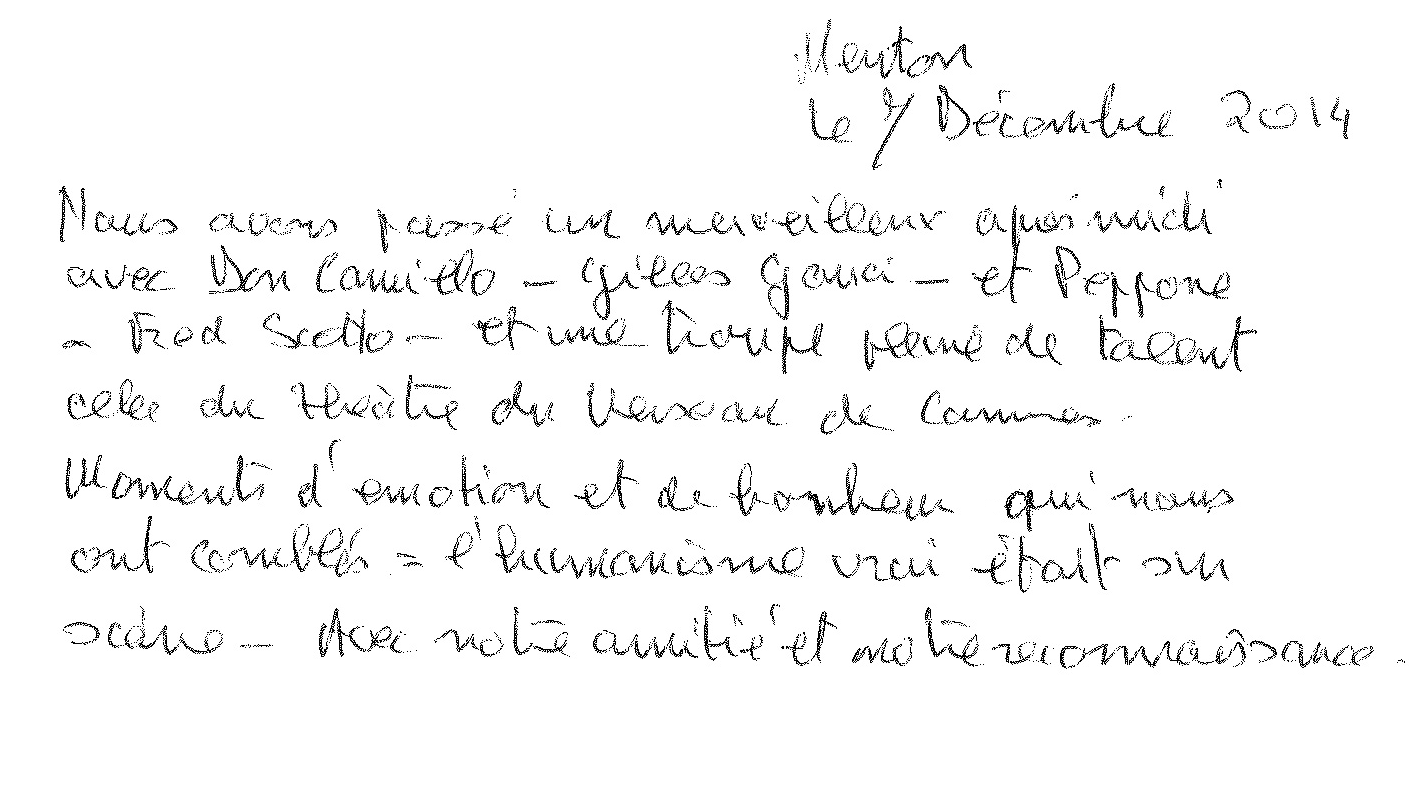 Menton
Le 7 Décembre 2014
Nous avons passé un merveilleux après midi
avec Don Camillo - Gilles Gauci - et Peppone
- Fred Scotto - et une troupe pleine de talent
celle du théâtre du Verseau de Cannes.
Moments d'émotion et de bonheur qui nous
ont comblés = l'humanisme vrai était sur
scène - Avec notre amitié et notre reconnaissance.